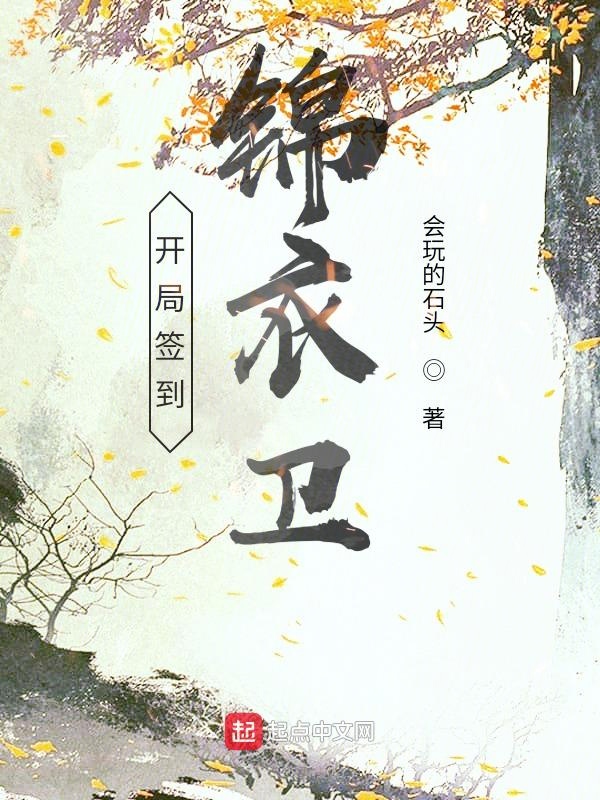 开局签到
锦衣卫
会玩的石头 ◎ 著
起 起点中文网